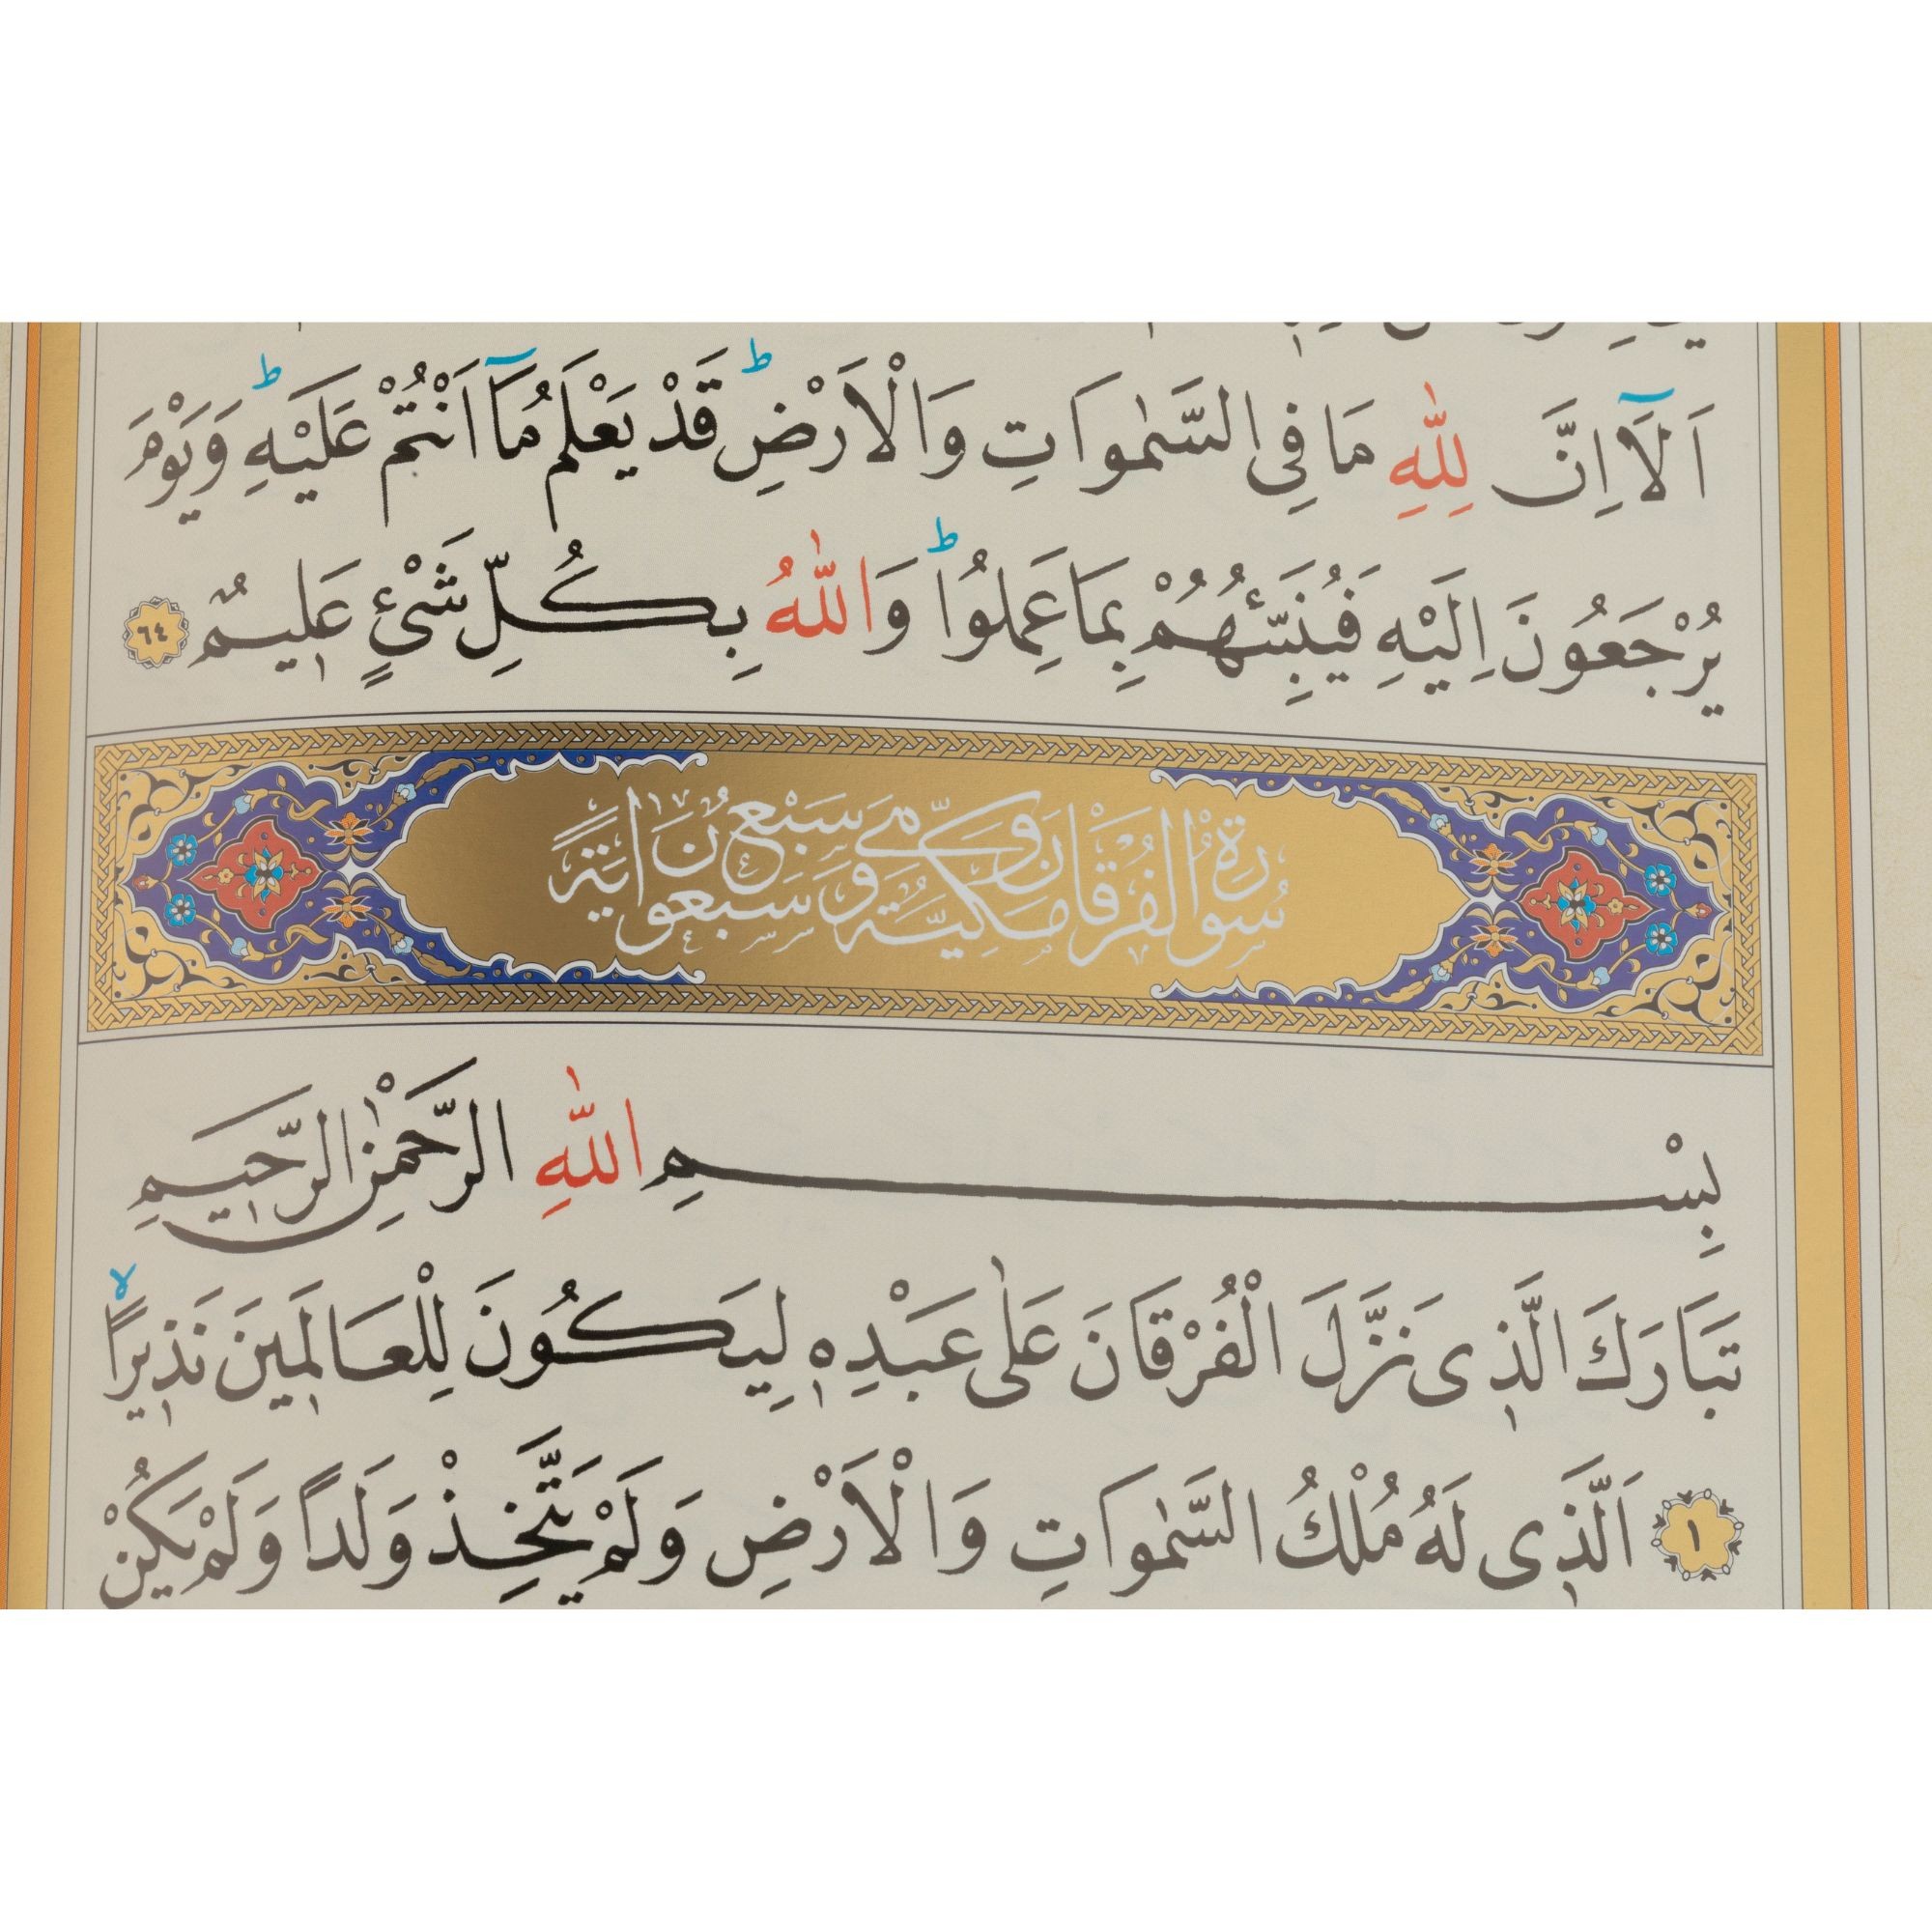 اَلَٓا اِنَّ لِلّٰهِ مَا فِي السَّمٰوَاتِ وَالْاَرْضِ ط قَدْ يَعْلَمُ مَٓا اَنْتُمْ عَلَيْهِ ط وَيَوْمَ
يُرْجَعُونَ اِلَيْهِ فَيُنَبِّئُهُمْ بِمَا عَمِلُوا ط وَاللّٰهُ بِكُلِّ شَيْءٍ عَلٖيمٌ ٦٤
سُورَةُ الْفُرْقَانِ مَكِّيَّةٌ وَهِيَ سَبْعٌ وَسَبْعُونَ اٰيَةً
بِسْمِ اللّٰهِ الرَّحْمٰنِ الرَّحٖيمِ
تَبَارَكَ الَّذٖى نَزَّلَ الْفُرْقَانَ عَلٰى عَبْدِهٖ لِيَكُونَ لِلْعَالَمٖينَ نَذٖيرًا لا
١ اَلَّذٖى لَهُ مُلْكُ السَّمٰوَاتِ وَالْاَرْضِ وَلَمْ يَتَّخِذْ وَلَدًا وَلَمْ يَكُنْ